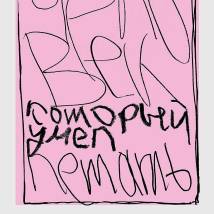 Век
который
умел
летать